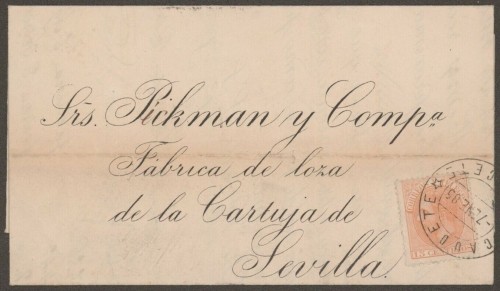 Srs. Pickman y Compª
Fábrica de loza
de la Cartuja de
Sevilla.
CAUDETE